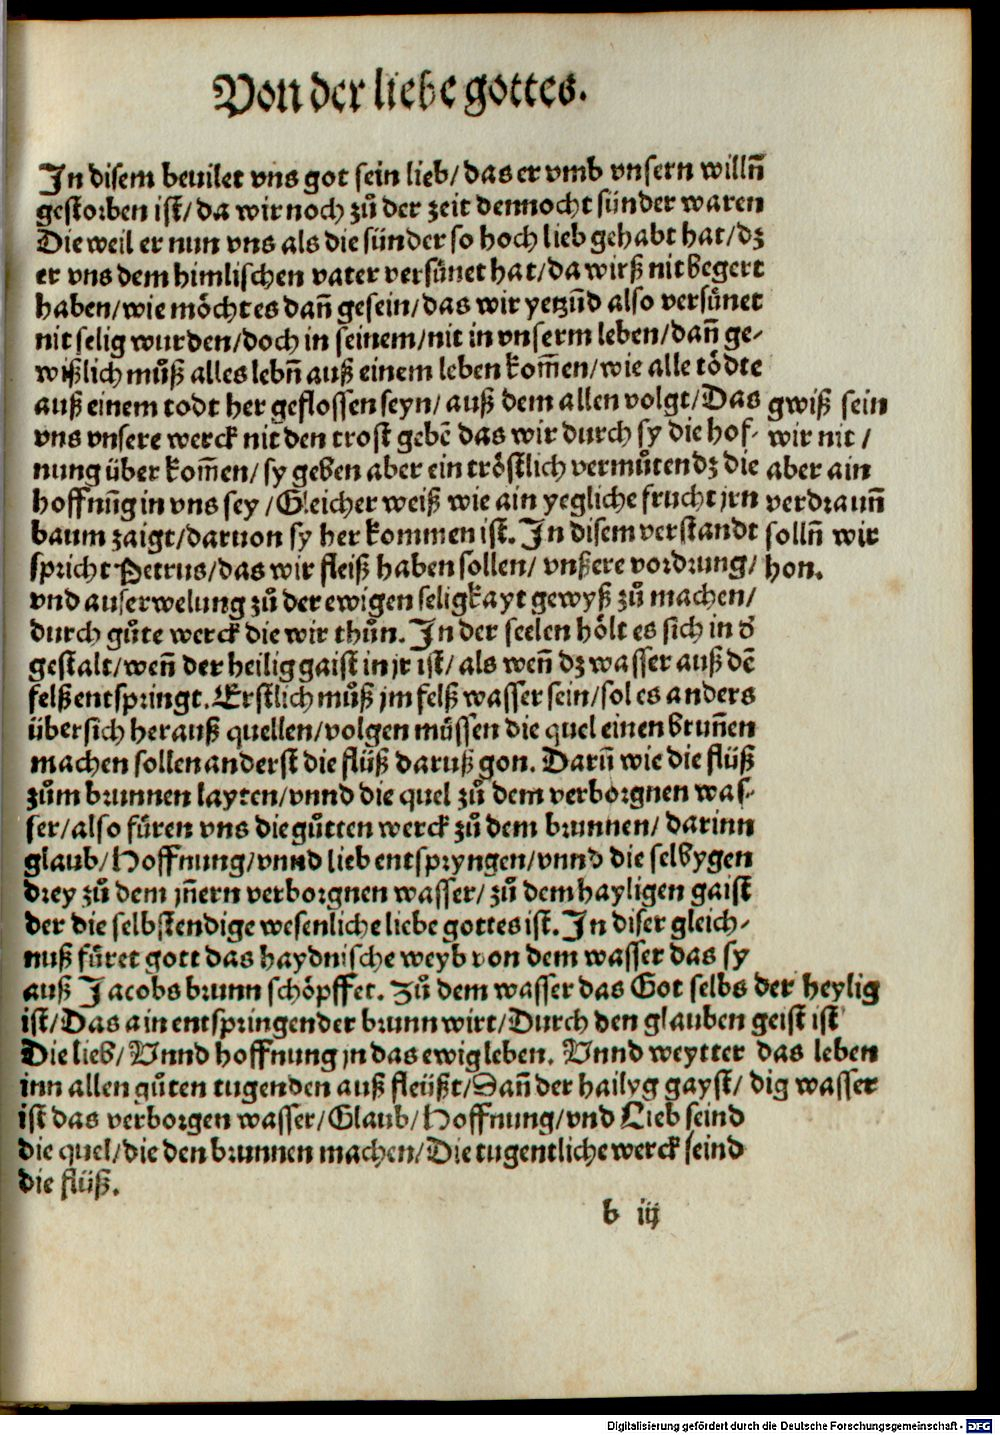 Von der liebe gottes.
In disem beuilet vns got sein lieb/ das er vmb vnsern willñ
gestorben ist/ da wir noch zů der zeit dennocht sünder waren
Die weil er nun vns als die sünder so hoch lieb gehabt hat/ dz
er vns dem himlischen vater versünet hat/ da wirß nit begert
haben/ wie möcht es dañ gesein/ das wir yetzũd also versünet
nit selig wurden/ doch in seinem/ nit in vnserm leben/ dañ ge-
wißlich můß alles lebñ auß einem leben kom̃en/ wie alle tödte
auß einem todt her geflossen seyn/ auß dem allen volgt/ Das
vns vnsere werck nit den trost gebẽ das wir durch sy die hof-
nung über kom̃en/ sy geben aber ein tröstlich vermůten dz die
hoffnũg in vns sey/ Gleicher weiß wie ain yegliche frucht jrn
baum zaigt/ daruon sy her kommen ist. In disem verstandt
spricht Petrus/ das wir fleiß haben sollen/ vnßere vordrung/
vnd auserwelung zů der ewigen seligkayt gewyß zů machen/
durch gůte werck die wir thůn. In der seelen hölt es sich in d̛
gestalt/ weñ der heilig gaist in jr ist/ als weñ dz wasser auß dẽ
felß entspringt. Erstlich můß jm felß wasser sein/ sol es anders
übersich herauß quellen/ volgen müssen die quel einen brun̄en
machen sollen anderst die flüß daruß gon. Darũ wie die flüß
zům brunnen layten/ vnnd die quel zů dem verborgnen was-
ser/ also füren vns die gůtten werck zů dem brunnen/ darinn
glaub/ Hoffnung/ vnnd lieb entspryngen/ vnnd die selbygen
drey zů dem jn̄ern verborgnen wasser/ zů dem hayligen gaist
der die selbstendige wesenliche liebe gottes ist. In diser gleich-
nuß füret gott das haydnische weyb von dem wasser das sy
auß Jacobs brunn schöpffet. Zů dem wasser das Got selbs
ist/ Das ain entspringender brunn wirt/ Durch den glauben
Die lieb/ Vnnd hoffnung jn das ewig leben. Vnnd weytter
inn allen gůten tugenden auß fleüßt/ Dañ der hailyg gayst/
ist das verborgen wasser/ Glaub/ Hoffnung/ vnd Lieb seind
die quel/ die den brunnen machen/ Die tugentliche werck seind
die flüß.
gwiß sein
wir nit /
aber ain
verdraun̄
sollñ wir
hon.
der heylig
geist ist
das leben
dig wasser
b iij
Digitalisierung gefördert durch die Deutsche Forschungsgemeinschaft - DFG